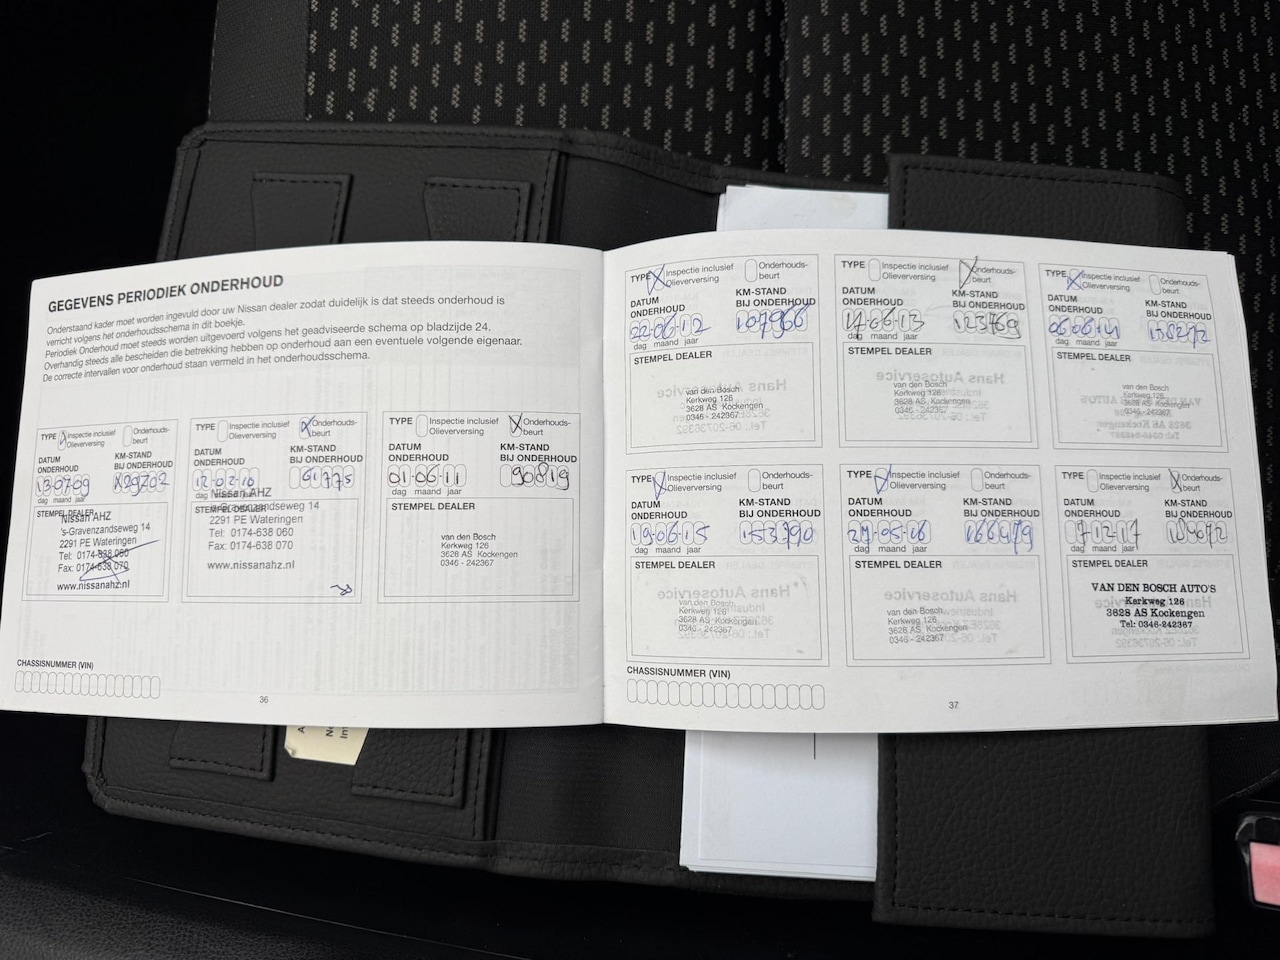 GEGEVENS PERIODIEK ONDERHOUD
Onderstaand kader moet worden ingevuld door uw Nissan dealer zodat duidelijk is dat steeds onderhoud is
verricht volgens het onderhoudsschema in dit boekje.
Periodiek Onderhoud moet steeds worden uitgevoerd volgens het geadviseerde schema op bladzijde 24.
Overhandig steeds alle bescheiden die betrekking hebben op onderhoud aan een eventuele volgende eigenaar.
De correcte intervallen voor onderhoud staan vermeld in het onderhoudsschema.
TYPE Inspectie inclusief Olieverversing Onderhouds-beurt
DATUM ONDERHOUD KM-STAND BIJ ONDERHOUD
13-07-09
dag maand jaar
STEMPEL DEALER
Nissan AHZ
's-Gravenzandseweg 14
2291 PE Wateringen
Tel: 0174-638 060
Fax: 0174-638 070
www.nissanahz.nl
TYPE Inspectie inclusief Olieverversing Onderhouds-beurt
DATUM ONDERHOUD KM-STAND BIJ ONDERHOUD
12-02-10 61775
dag maand jaar
STEMPEL DEALER
Nissan AHZ
's-Gravenzandseweg 14
2291 PE Wateringen
Tel: 0174-638 060
Fax: 0174-638 070
www.nissanahz.nl
TYPE Inspectie inclusief Olieverversing Onderhouds-beurt
DATUM ONDERHOUD KM-STAND BIJ ONDERHOUD
01-06-11 90819
dag maand jaar
STEMPEL DEALER
van den Bosch
Kerkweg 126
3628 AS Kockengen
0346 - 242367
CHASSISNUMMER (VIN)
36
TYPE Inspectie inclusief Olieverversing Onderhouds-beurt
DATUM ONDERHOUD KM-STAND BIJ ONDERHOUD
22-06-12 107966
dag maand jaar
STEMPEL DEALER
van den Bosch
Kerkweg 126
3628 AS Kockengen
0346 - 242367
TYPE Inspectie inclusief Olieverversing Onderhouds-beurt
DATUM ONDERHOUD KM-STAND BIJ ONDERHOUD
17-06-13 123769
dag maand jaar
STEMPEL DEALER
van den Bosch
Kerkweg 126
3628 AS Kockengen
0346 - 242367
TYPE Inspectie inclusief Olieverversing Onderhouds-beurt
DATUM ONDERHOUD KM-STAND BIJ ONDERHOUD
06-06-14 138272
dag maand jaar
STEMPEL DEALER
van den Bosch
Kerkweg 126
3628 AS Kockengen
0346 - 242367
TYPE Inspectie inclusief Olieverversing Onderhouds-beurt
DATUM ONDERHOUD KM-STAND BIJ ONDERHOUD
19-06-15 153790
dag maand jaar
STEMPEL DEALER
van den Bosch
Kerkweg 126
3628 AS Kockengen
0346 - 242367
TYPE Inspectie inclusief Olieverversing Onderhouds-beurt
DATUM ONDERHOUD KM-STAND BIJ ONDERHOUD
27-05-16 166479
dag maand jaar
STEMPEL DEALER
van den Bosch
Kerkweg 126
3628 AS Kockengen
0346 - 242367
TYPE Inspectie inclusief Olieverversing Onderhouds-beurt
DATUM ONDERHOUD KM-STAND BIJ ONDERHOUD
7-12-17
dag maand jaar
STEMPEL DEALER
VAN DEN BOSCH AUTO'S
Kerkweg 126
3628 AS Kockengen
Tel: 0346-242367
CHASSISNUMMER (VIN)
37